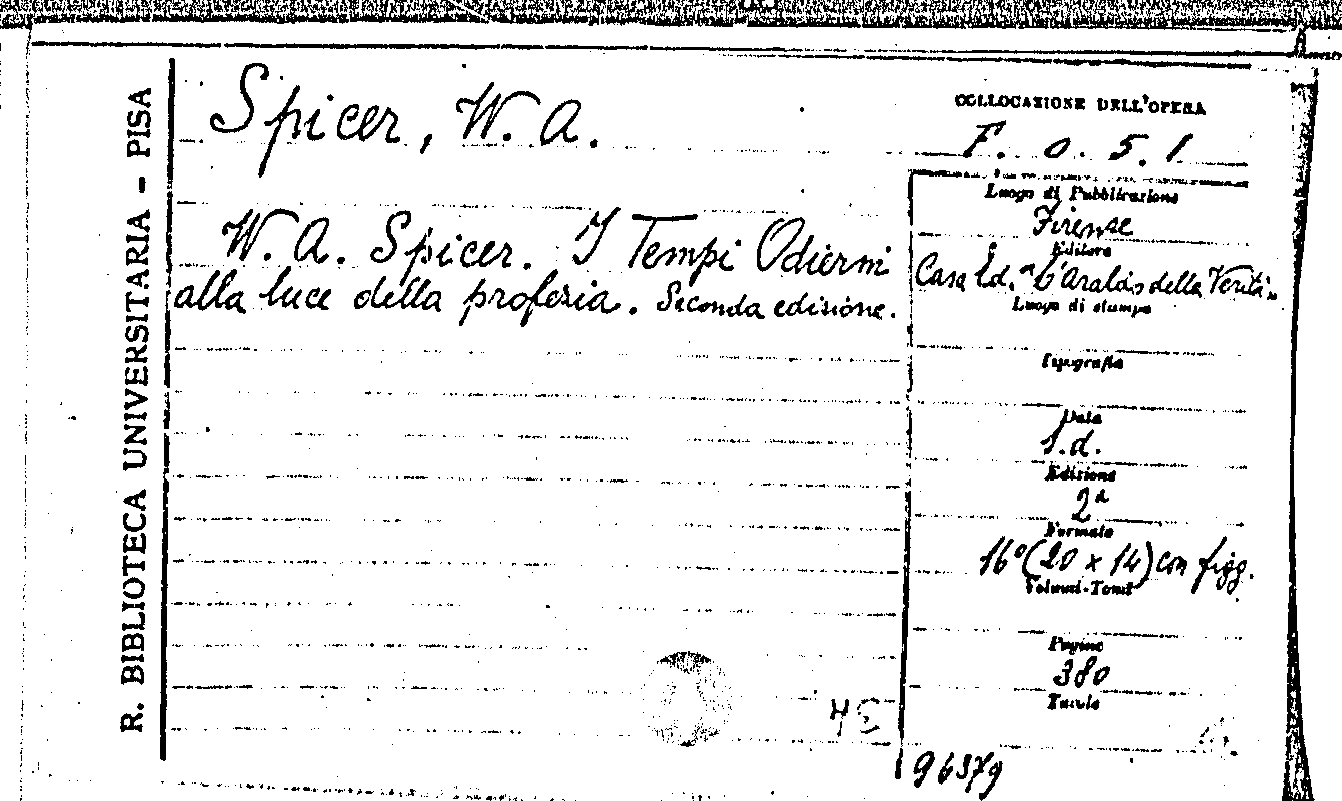 R. BIBLIOTECA UNIVERSITARIA - PISA
Spicer, W. A.
W. A. Spicer. I Tempi Odierni
alla luce della profezia. Seconda edizione.
COLLOCAZIONE DELL'OPERA
F. O. 5. 1
Luogo di Pubblicazione
Firenze
Editore
Casa Ed. "L'Araldo della Verità"
Luogo di stampa
Tipografia
Data
s.d.
Edizione
2a
Formato
16° (20 x 14) con figg.
Volumi-Tomi
Pagine
380
Tavole
96379